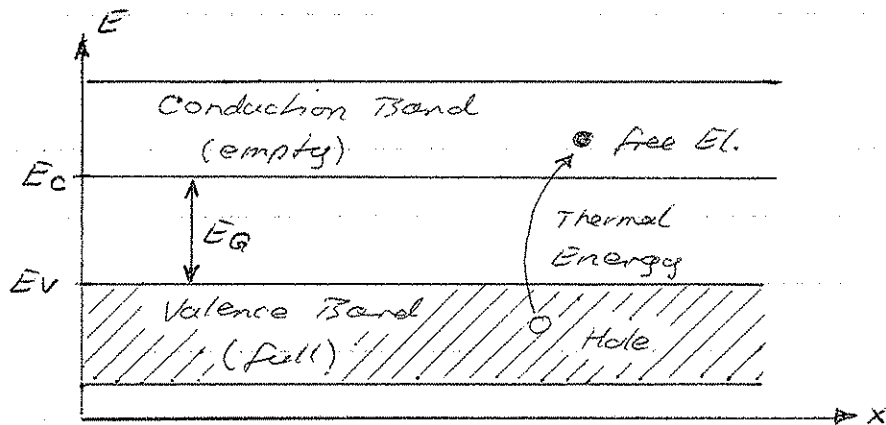 E
Conduction Band
(empty)
free El.
Ec
EG
Thermal
Energy
Ev
Valence Band
(full)
Hole
x